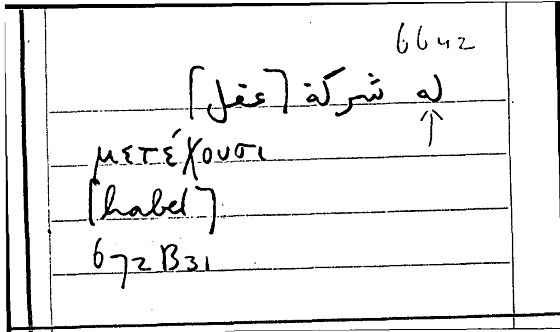 6642
له شركة [عقل]
↑
μετέχουσι
[habet]
672 B31